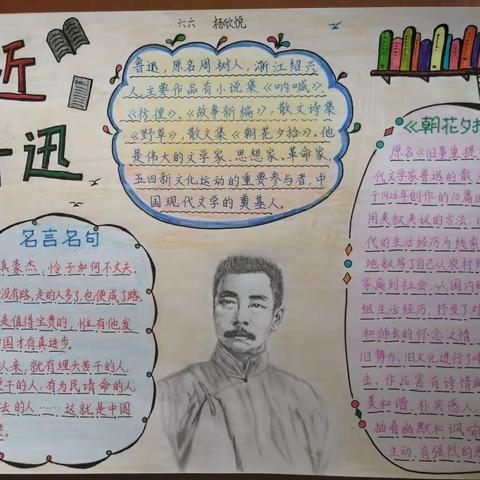 六六 杨欣悦
近
迅
鲁迅，原名周树人，浙江绍兴
人，主要作品有小说集《呐喊》、
《彷徨》、《故事新编》，散文诗集
《野草》，散文集《朝花夕拾》。他
是伟大的文学家、思想家、革命家，
五四新文化运动的重要参与者，中
国现代文学的奠基人。
名言名句
真豪杰，怜子如何不丈夫。
没有路，走的人多了，也便成了路。
是值得宝贵的，惟有他发
国才有真进步。
以来，就有埋头苦干的人，
硬干的人，有为民请命的人，
法的人……这就是中国
《朝花夕拾
原名《旧事重提
代文学家鲁迅的散文
于1926年创作的10篇回
用夹叙夹议的方法，以
代的生活经历为线索
地叙写了自己从农村到
家庭到社会，从国内到
组生活经历，抒发了对
和师长的怀念之情，
旧势力、旧文化进行了嘲
击。作品富有诗情画
美和谐，朴实感人，
插着幽默和讽喻
生动，有强烈的